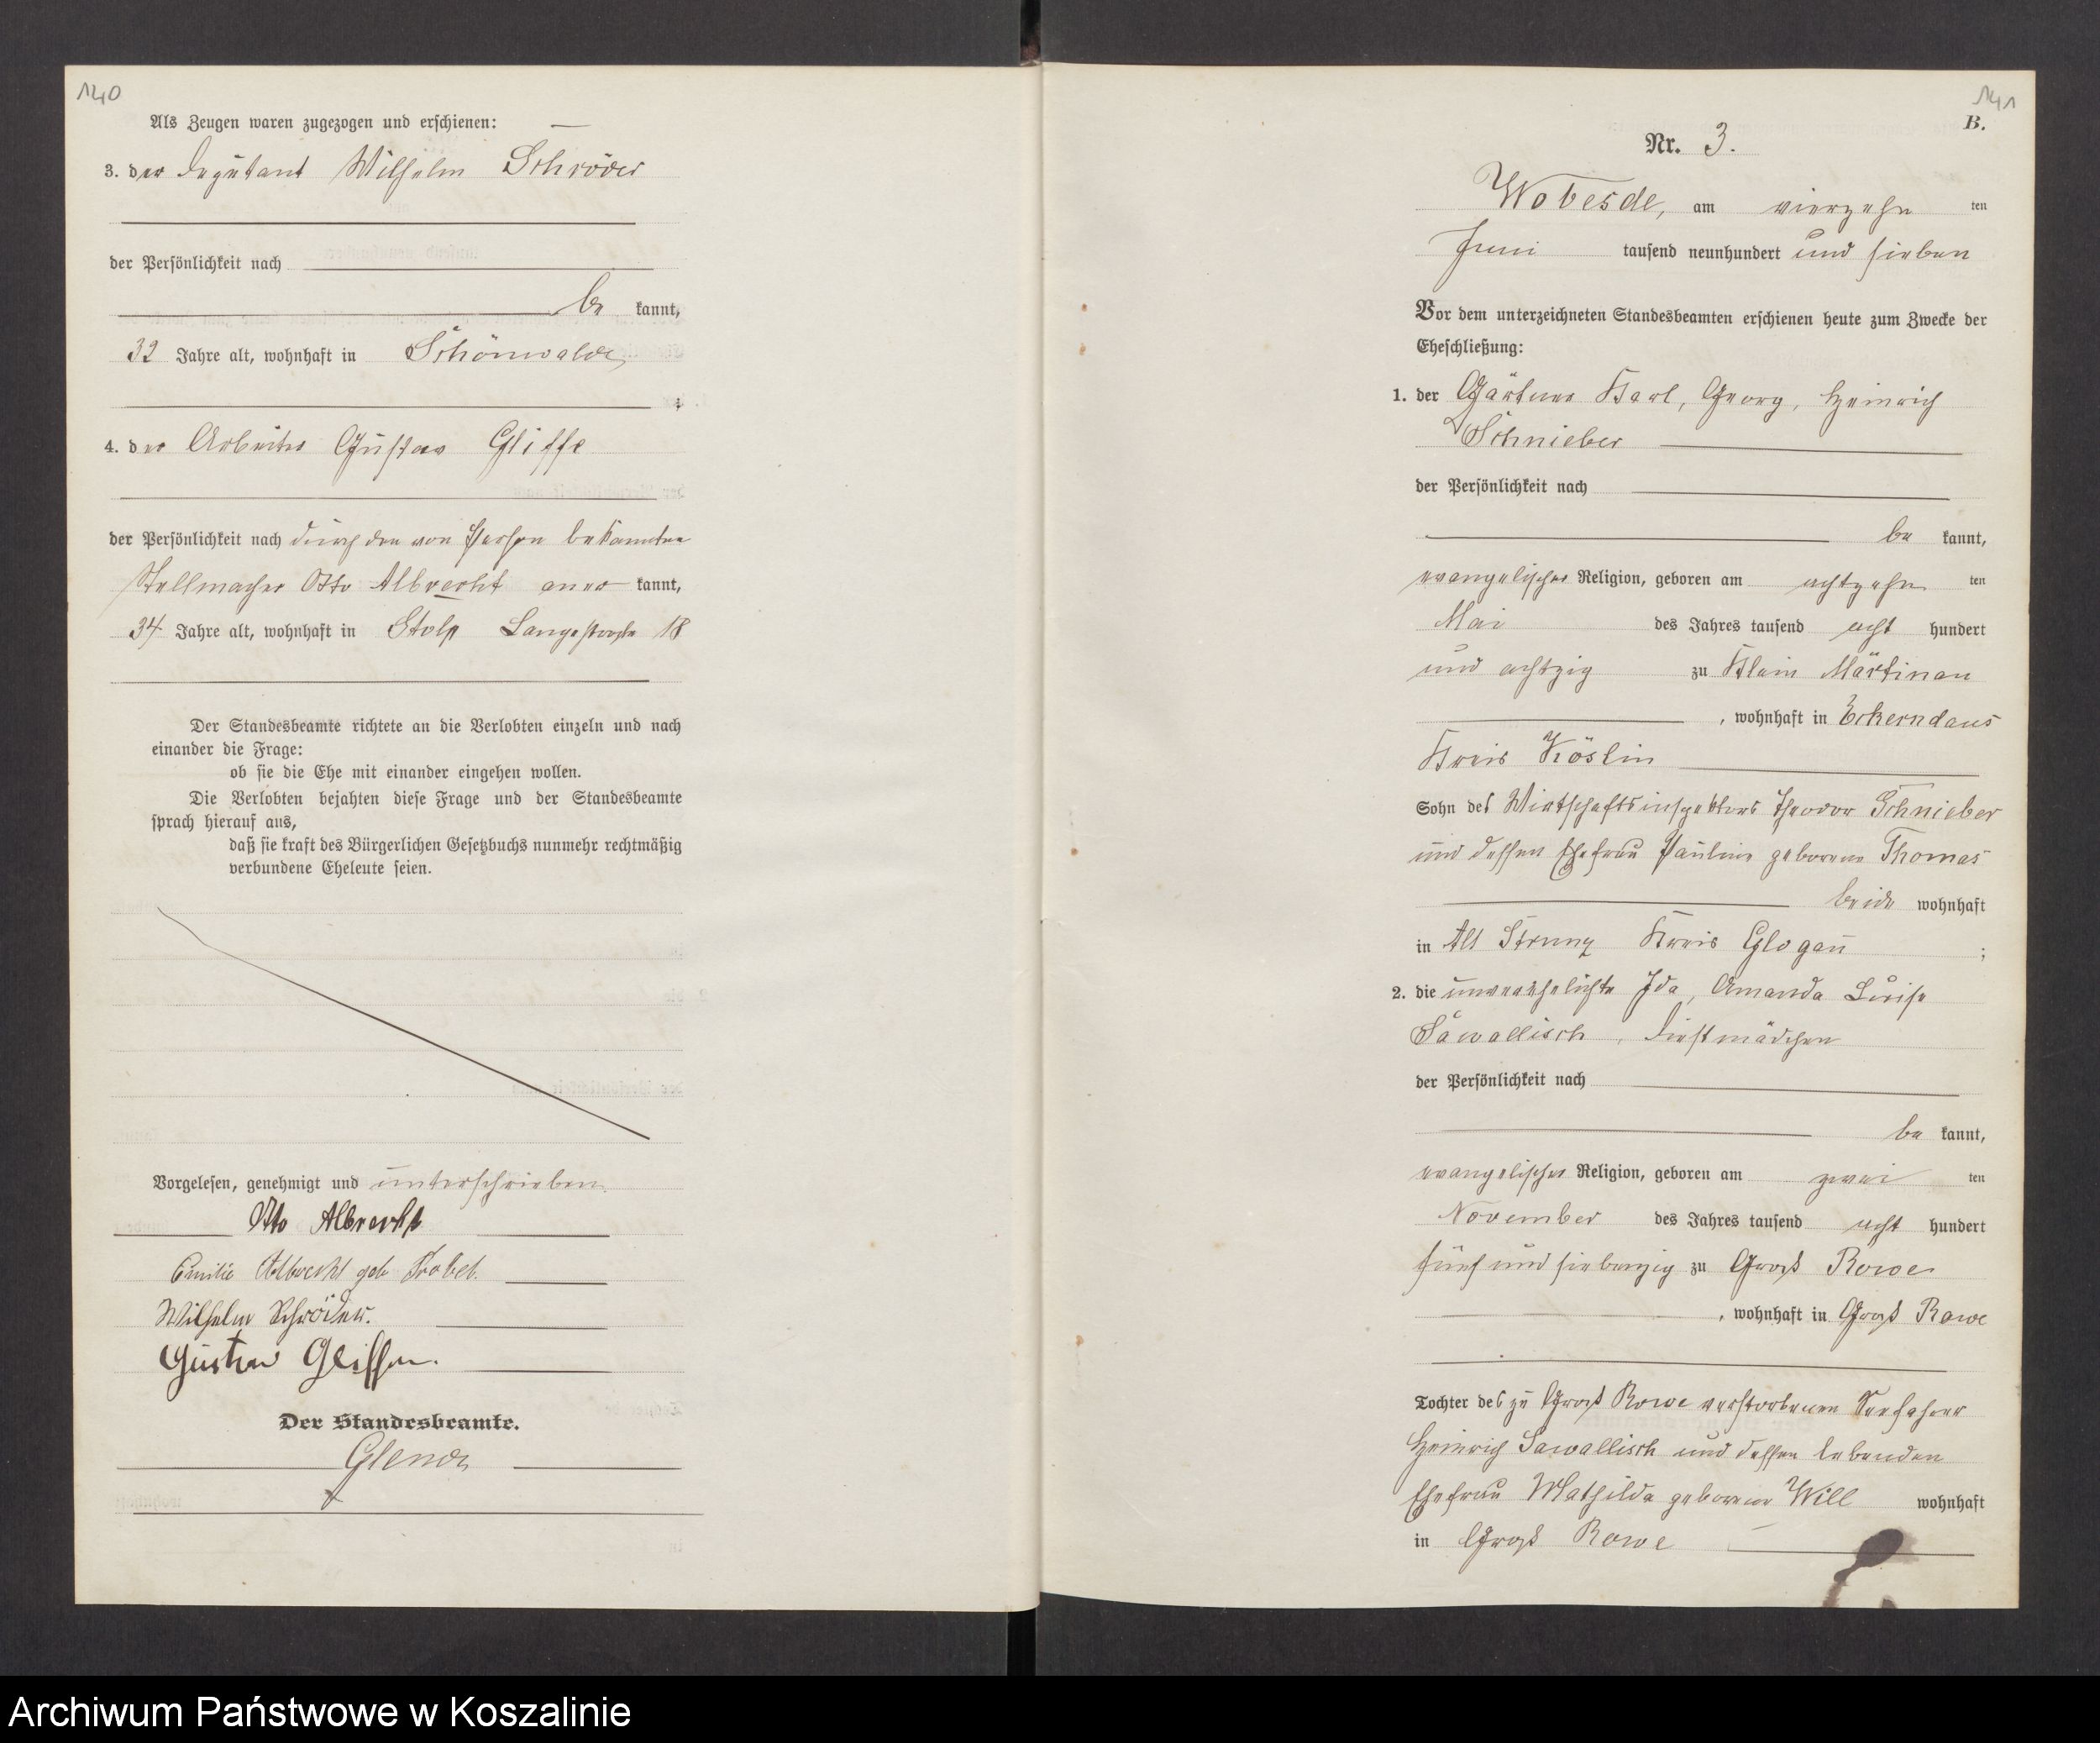 140
Als Zeugen waren zugezogen und erschienen:
3. der Deputant Wilhelm Schröder
der Persönlichkeit nach
be kannt,
32 Jahre alt, wohnhaft in Schönwalde
;
4. der Arbeiter Gustav Gliffe
der Persönlichkeit nach durch den von Person bekannten
Stellmacher Otto Albrecht aner kannt,
34 Jahre alt, wohnhaft in Stolp Langestraße 18
Der Standesbeamte richtete an die Verlobten einzeln und nach
einander die Frage:
ob sie die Ehe mit einander eingehen wollen.
Die Verlobten bejahten diese Frage und der Standesbeamte
sprach hierauf aus,
daß sie kraft des Bürgerlichen Gesetzbuchs nunmehr rechtmäßig
verbundene Eheleute seien.
Vorgelesen, genehmigt und unterschrieben
Otto Albrecht
Emilie Albrecht geb
Wilhelm Schröder.
Gustav
Der Standesbeamte.
141
B.
Nr. 3.
Wobesde, am vierzehn ten
Juni tausend neunhundert und sieben
Vor dem unterzeichneten Standesbeamten erschienen heute zum Zwecke der
Eheschließung:
1. der Gärtner Karl, Georg, Heinrich
Schnieber
der Persönlichkeit nach
be kannt,
evangelischer Religion, geboren am achtzehn ten
Mai des Jahres tausend acht hundert
und achtzig zu Klein Märtinau
, wohnhaft in
Kreis Köslin
Sohn des Wirtschaftsinspektors Theodor Schnieber
und dessen Ehefrau Pauline geborene Thomas
beide wohnhaft
in Alt Strunz Kreis Glogau ;
2. die unverehelichte Ida, Amanda Luise
Sawallisch, Dienstmädchen
der Persönlichkeit nach
be kannt,
evangelischer Religion, geboren am zwei ten
November des Jahres tausend acht hundert
fünf und siebenzig zu Groß Rowe
, wohnhaft in Groß Rowe
Tochter des zu Groß Rowe verstorbenen Seefahrer
Heinrich Sawallisch und dessen lebenden
Ehefrau Mathilda geborene Will wohnhaft
in Groß Rowe
Archiwum Państwowe w Koszalinie